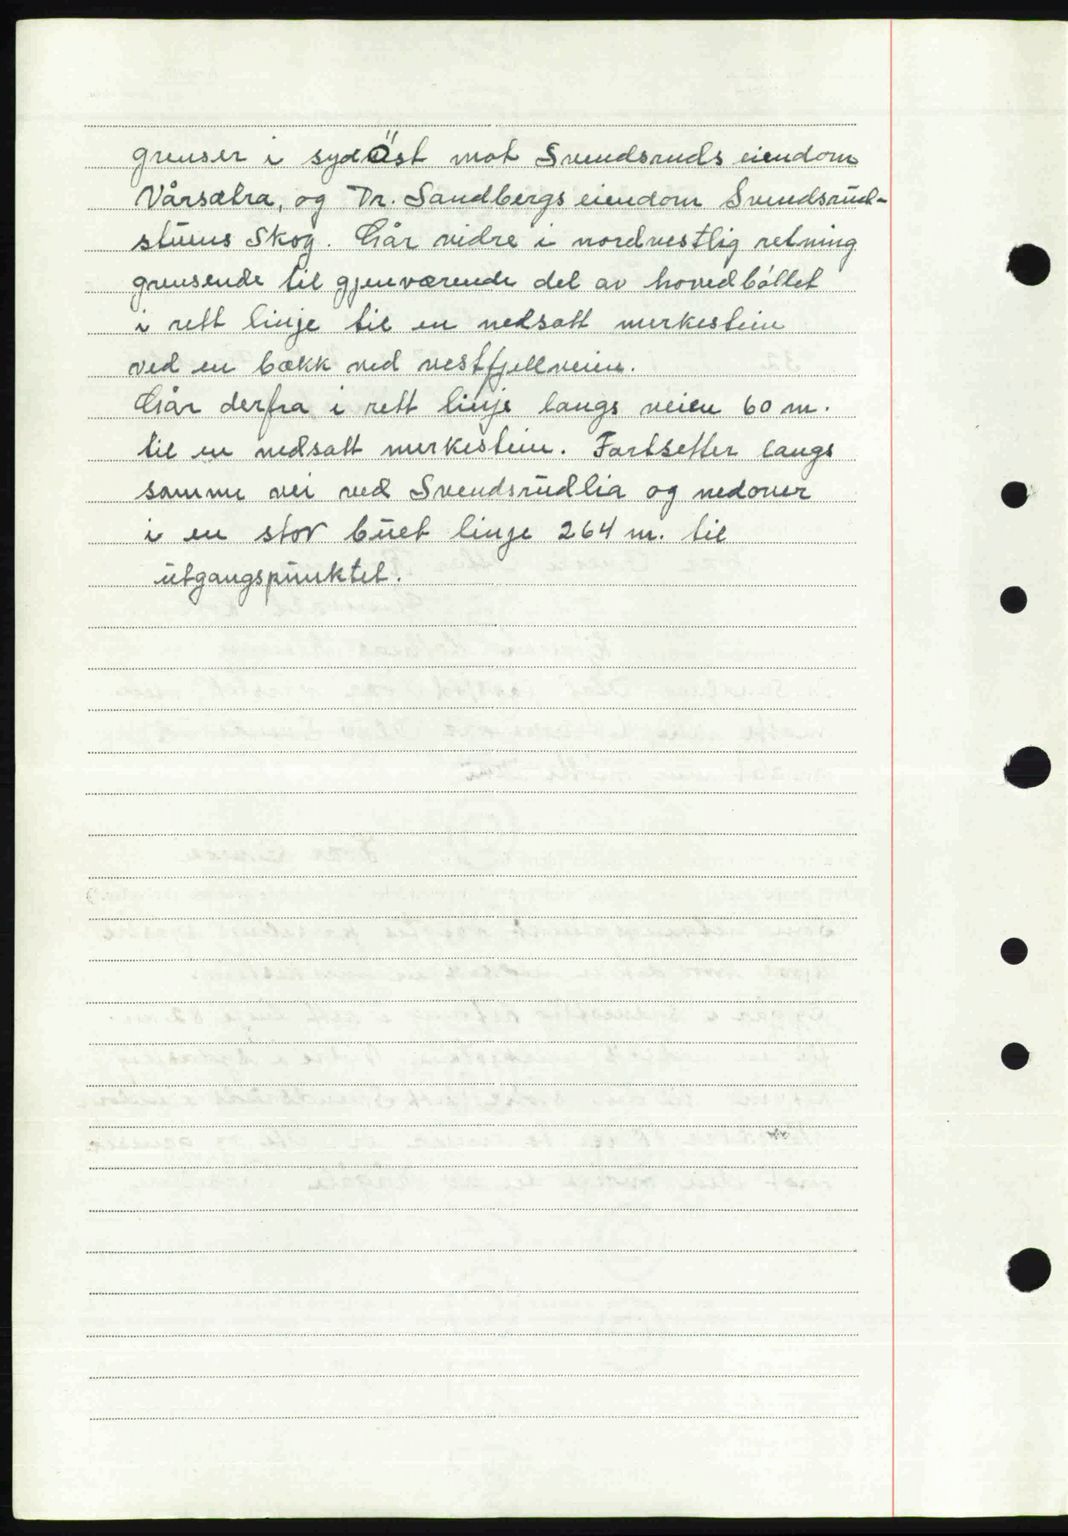 grenser i sydÖst mot Svendsruds eiendom
Vårsætra, og Dr. Sandbergs eiendom Svendsrud-
stuens Skog. Går vidre i nordvestlig retning
grensende til gjenværende del av hovedbølet
i rett linje til en nedsatt merkestein
ved en bækk ved vestfjellveien.
Går derfra i rett linje langs veien 60 m.
til en nedsatt merkestein. Fortsetter langs
samme vei ved Svendsrudlia og nedover
i en stor buet linje 264 m. til
utgangspunktet.